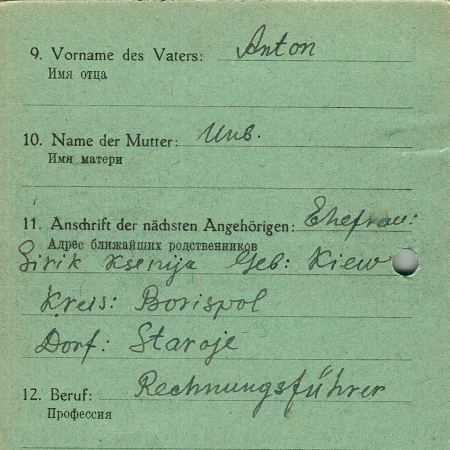 9. Vorname des Vaters: Anton
Имя отца
10. Name der Mutter: Unb.
Имя матери
11. Anschrift der nächsten Angehörigen: Ehefrau:
Адрес ближайших родственников
Sirik Ksenija Geb: Kiew
Kreis: Borispol
Dorf: Staroje
12. Beruf: Rechnungsführer
Профессия